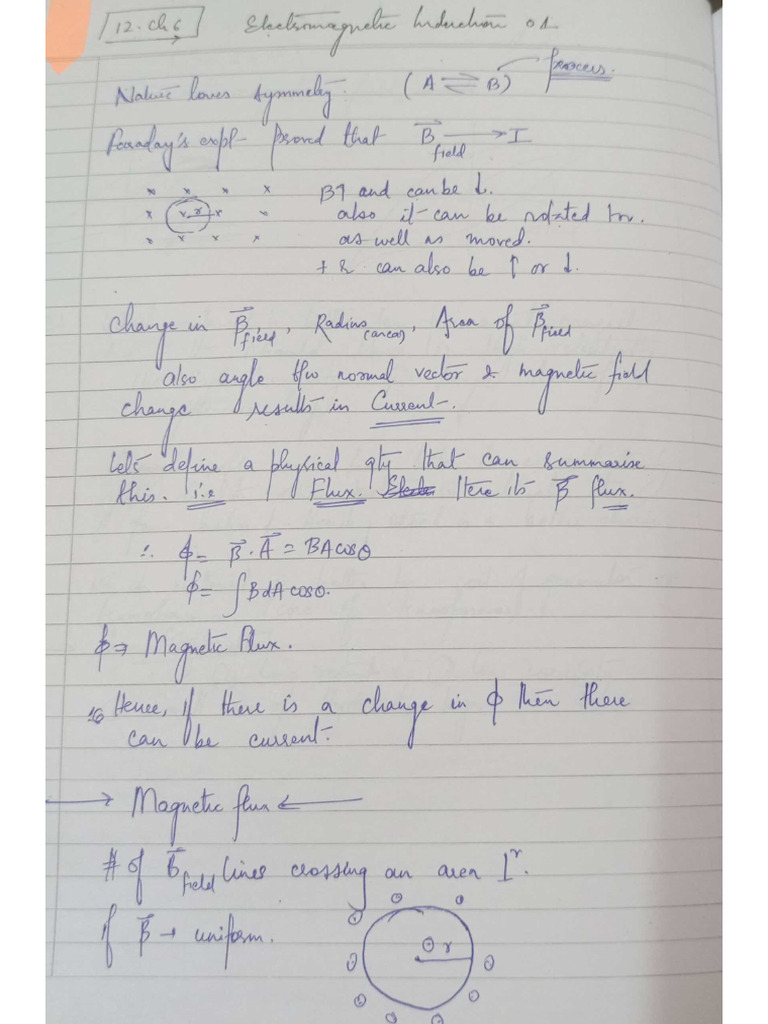 12. Ch 6 Electromagnetic Induction 01
Nature loves symmetry. (A ⇌ B) process.
Faraday's expt - Proved that B⃗ field → I
B↑ and can be ↓.
also it can be rotated
as well as moved.
+ r can also be ↑ or ↓.
Change in B⃗ field, Radius (area), Area of B⃗ field
also angle b/w normal vector & magnetic field
change results in Current.
Let's define a physical qty that can summarise
this. i.e Flux. Here its B⃗ flux.
∴ ϕ = B⃗ · A⃗ = BA cosθ
ϕ = ∫ B dA cosθ.
ϕ ⇒ Magnetic Flux.
Hence, if there is a change in ϕ then there
can be current.
→ Magnetic flux ←
# of B⃗ field lines crossing an area Iʳ.
if B⃗ → uniform.
r